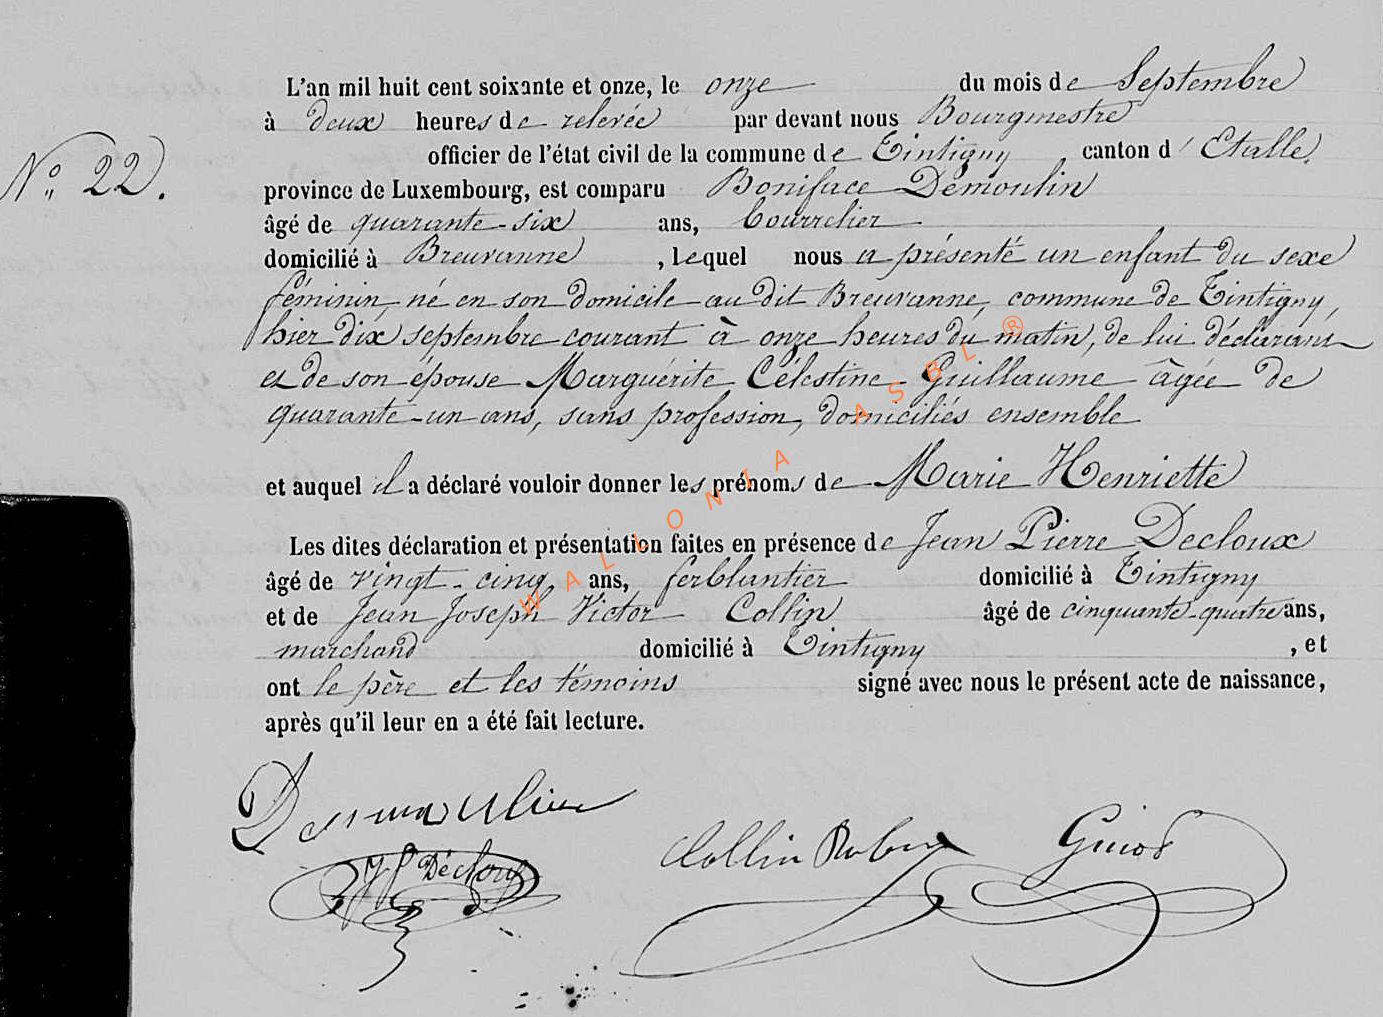 L'an mil huit cent soixante et onze, le onze du mois de Septembre
à deux heures de relevée par devant nous Bourgmestre
officier de l'état civil de la commune de Tintigny canton d'Etalle,
No. 22.
province de Luxembourg, est comparu Boniface Demoulin
âgé de quarante-six ans, bourrelier
domicilié à Breuvanne, lequel nous a présenté un enfant du sexe
féminin, né en son domicile au dit Breuvanne, commune de Tintigny,
hier dix septembre courant à onze heures du matin, de lui déclarant
et de son épouse Marguérite Célestine Guillaume âgée de
quarante-un ans, sans profession, domiciliés ensemble
et auquel il a déclaré vouloir donner les prénoms de Marie Henriette
Les dites déclaration et présentation faites en présence de Jean Pierre Decloux
âgé de vingt-cinq ans, ferblantier domicilié à Tintigny
et de Jean Joseph Victor Collin âgé de cinquante-quatre ans,
marchand domicilié à Tintigny, et
ont le père et les témoins signé avec nous le présent acte de naissance,
après qu'il leur en a été fait lecture.
WALLONIA ASBL ®
Demoulin
JP Décloux
Collin